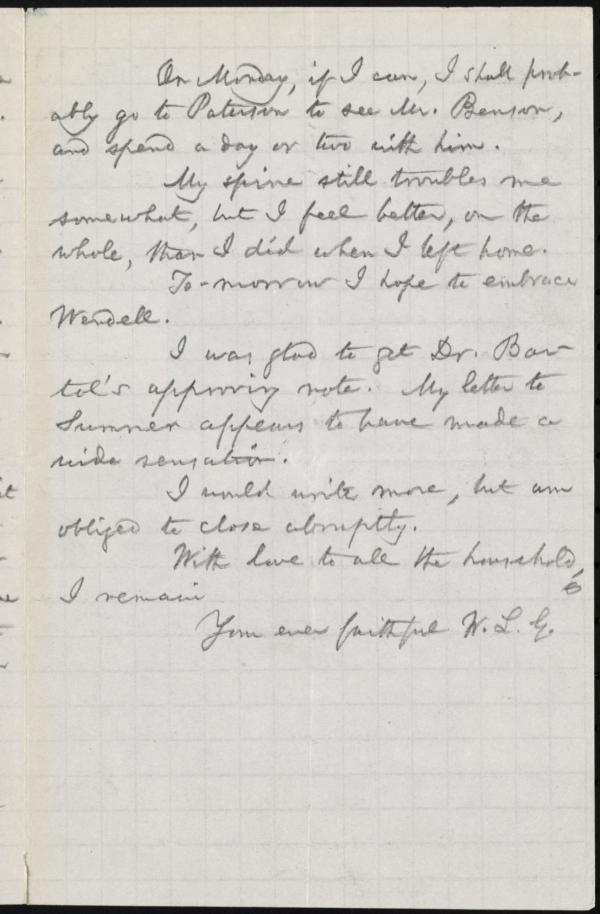 On Monday, if I can, I shall prob-
ably go to Paterson to see Mr. Benson,
and spend a day or two with him.
My spine still troubles me
somewhat, but I feel better, on the
whole, than I did when I left home.
To-morrow I hope to embrace
Wendell.
I was glad to get Dr. Bar-
tol's approving note. My letter to
Sumner appears to have made a
wide sensation.
I would write more, but am
obliged to close abruptly.
With love to all the household,
I remain
Your ever faithful W. L. G.